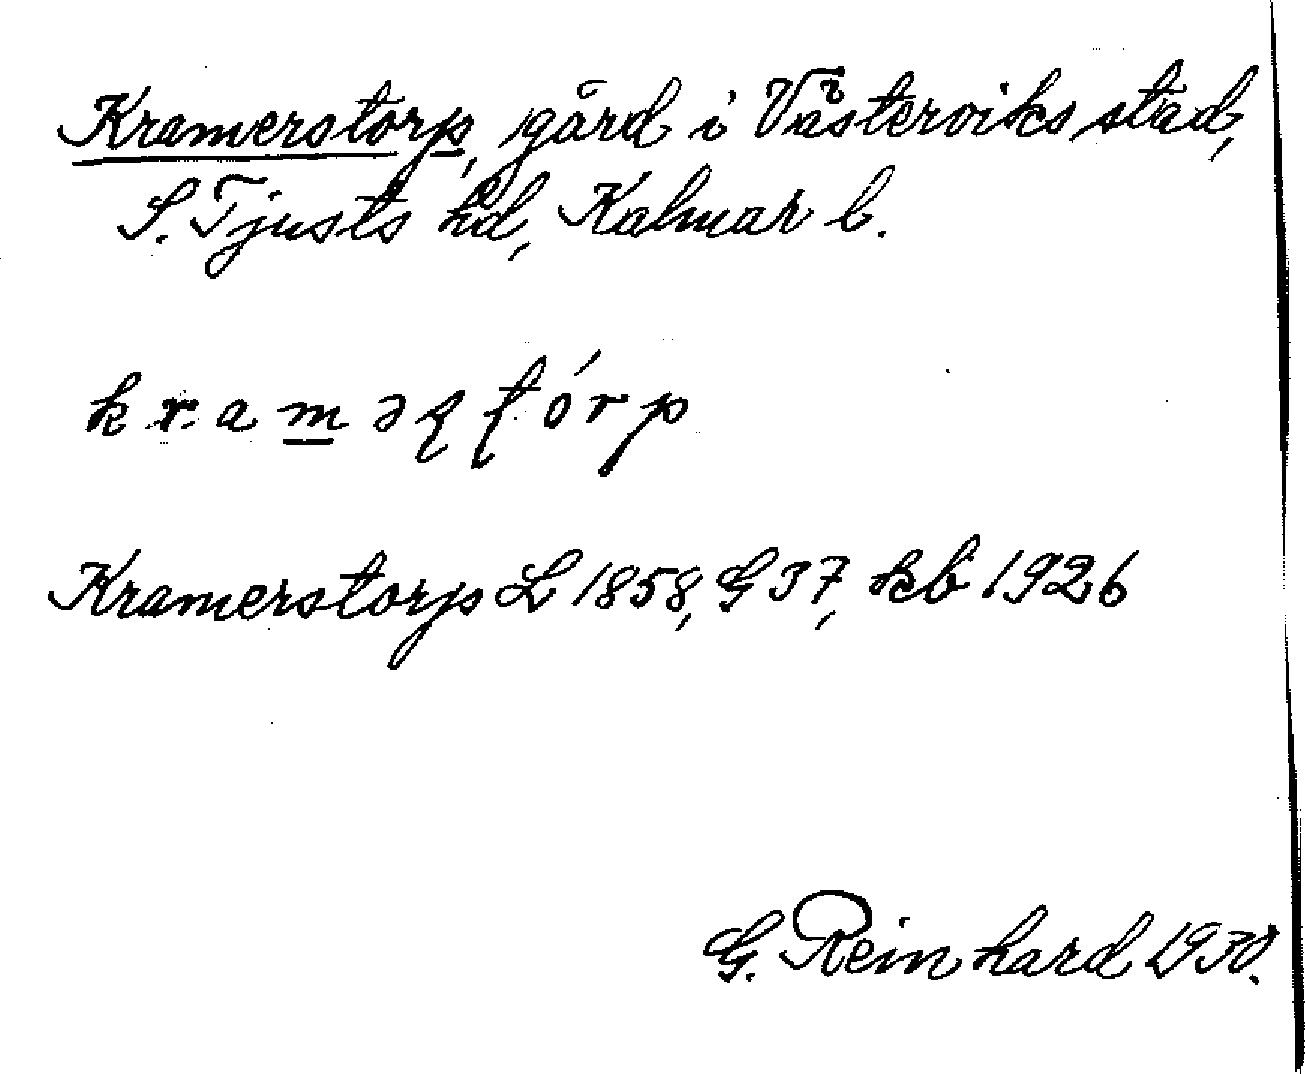 Kramerstorp, gård i Västerviks stad,
S. Tjusts hd, Kalmar l.
kraməʂʈórp
Kramerstorp L 1858, G 37, kb 1926
G. Reinhard 1930.